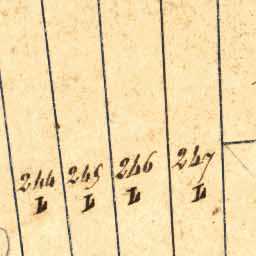 244 245 246 247
L L L L